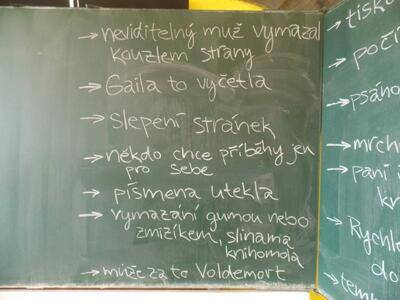 → neviditelný muž vymazal
kouzlem strany
→ Gaila to vyčetla
→ Slepení stránek
→ někdo chce příběhy jen
pro sebe
→ písmena utekla
→ vymazání gumou nebo
zmizíkem, slinama
knihomola
→ může za to Voldemort
→ tisk
→ počí
→ psáno
→ mrch
→ paní
kn
→ Rychle
do